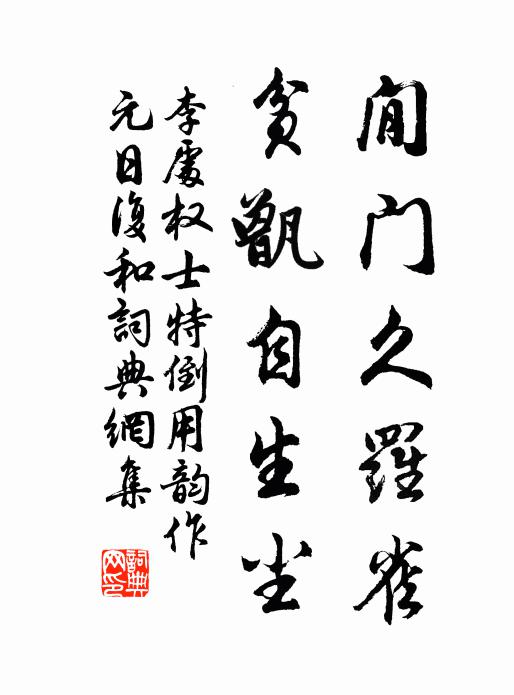 閒門久羅雀
貧甑自生尘
李處权士特倒用韵作
元日復和詞典網集
詞典网印